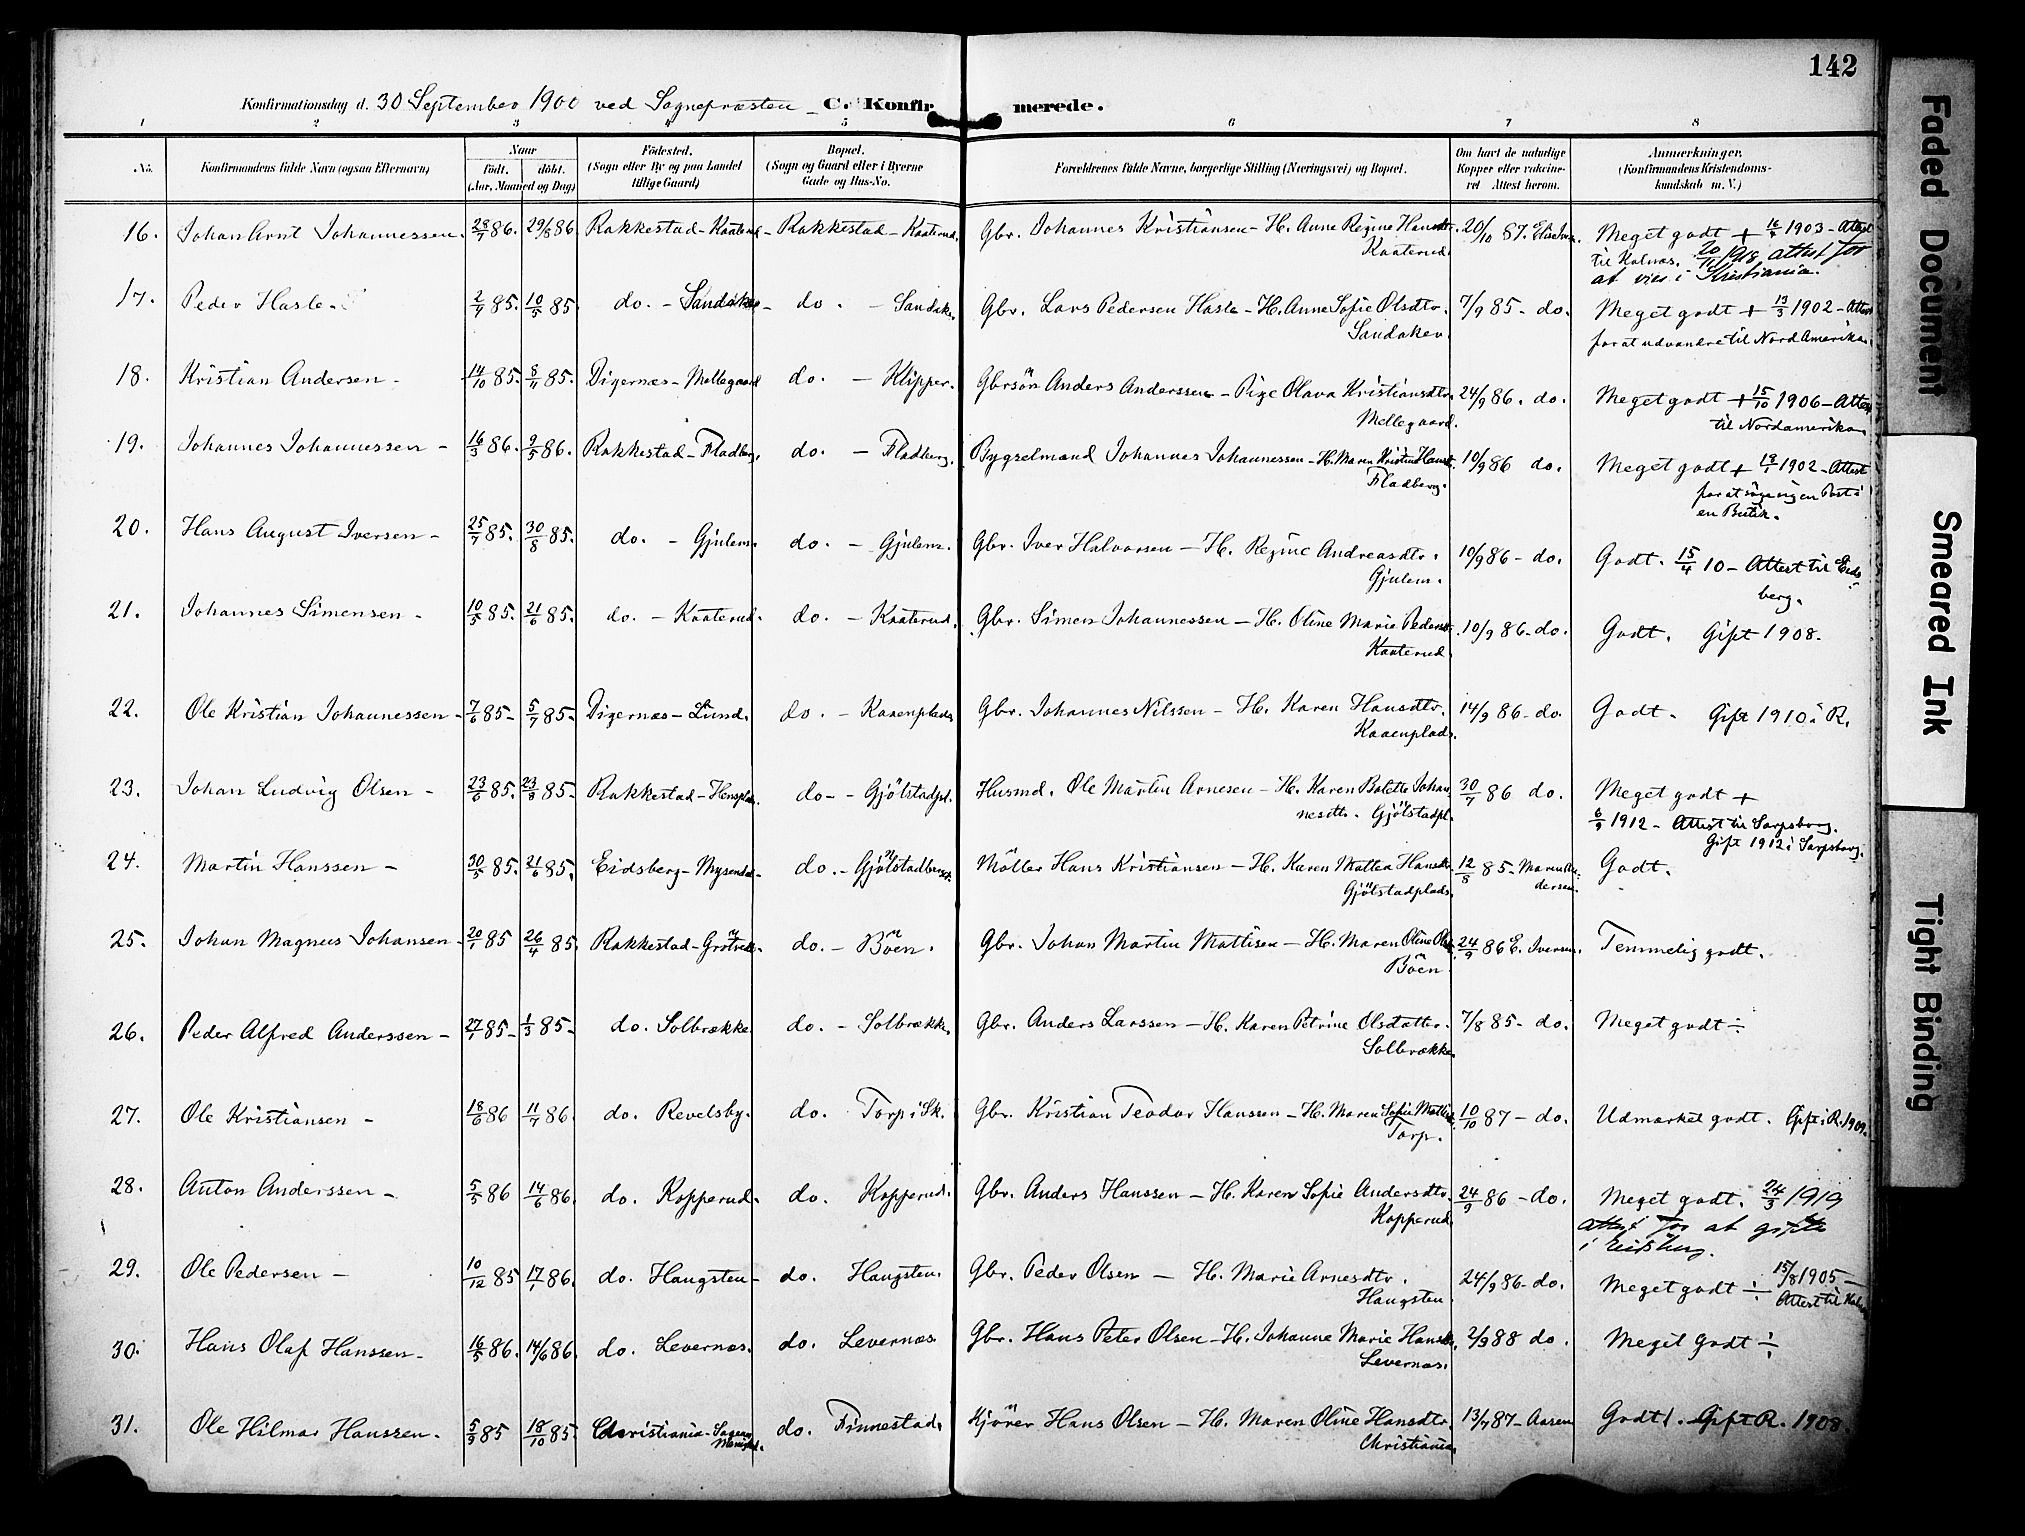 142
Konfirmationsdag d. 30 September 1900 ved Sognepræsten C. Konfirmerede.
1 2 3 4 5 6 7 8
No. Konfirmandens fulde Navn (ogsaa Efternavn) Naar født. døbt. (Aar, Maaned og Dag) Födested. (Sogn eller By og paa Landet tillige Gaard) Bopæl. (Sogn og Gaard eller i Byerne Gade og Hus-No. Forældrenes fulde Navne, borgerlige Stilling (Næringsvei) og Bopæl. Om havt de naturlige Kopper eller vakcineret Attest herom. Anmærkninger. (Konfirmandens Kristendomskundskab m. V.)
16. Johan Arnt Johannessen. 28/7 86. 29/8 86. Rakkestad - Kaaterud - Rakkestad - Kaaterud. Gbr. Johannes Kristiansen - H. Anne Regine Hansdtr. 20/10 87. Meget godt + 1903 - Attest
Kaaterud. til Kolnæs. 20/11 1918 attest for
at vies i Kristiania.
17. Peder Hasle. 2/4 85. 10/5 85. do. - Sandaker - do. - Sandaker. Gbr. Lars Pedersen Hasle - H. Anne Sofie Olsdtr. 7/9 85 - do. Meget godt + 13/3 1902 - Attest
Sandaker. for at udvandre til Nord Amerika.
18. Kristian Andersen - 14/10 85. 8/11 85. Digernæs - Mellegaard do. - Klipper. Gbrsön Anders Anderssen - Pige Olava Kristiansdtr. 24/9 86. do. Meget godt + 15/10 1906 - Attest
Mellegaard. til Nordamerika.
19. Johannes Johannessen - 16/3 86. 9/5 86. Rakkestad - Fladberg. do. - Fladberg. Bygselmand Johannes Johannessen - H. Maren Kristine Hansdt. 10/9 86 do. Meget godt + 1902 - Attest
Fladberg. for at søge sig en Post i
en Butik.
20. Hans August Iversen - 25/7 85. 30/8 85. do. - Gjulem. do. - Gjulem. Gbr. Iver Halvorsen - H. Regine Andreasdtr. 10/9 86 - do. Godt. 15/4 10 - Attest til Eids
Gjulem. berg.
21. Johannes Simensen - 10/5 85. 21/6 85. do. - Kaaterud. do. - Kaaterud. Gbr. Simen Johannessen - H. Oline Marie Pedersdt. 10/9 86 - do. Godt. Gift 1908.
Kaaterud.
22. Ole Kristian Johannessen - 7/6 85 - 5/7 85 - Digernæs - Lund. do. - Kaaenplads Gbr. Johannes Nilssen - H. Karen Hansdtr. 14/9 86 - do. Godt. Gift 1910 i R.
Kaaenplads.
23. Johan Ludvig Olsen - 23/6 85. 23/8 85 - Rakkestad - Hensplads. do - - Gjölstadpl. Husmd. Ole Martin Arnesen - H. Karen Bolette Johan 30/7 86 do. Meget godt +
nesdtr. Gjölstadpl. 6/9 1912 - Attest til Sarpsborg.
Gift 1912 i Sarpsborg.
24. Martin Hanssen - 30/5 85. 21/6 85. Eidsberg - Mysen do. - Möller Hans Kristiansen - H. Karen Mathea Hansdtr. 12/8 85 - Maren An- Godt.
Gjölstadplads. dersen.
25. Johan Magnus Johansen - 20/1 85 26/4 85. Rakkestad - do. - Böen. Gbr. Johan Martin Mattisen - H. Maren Oline 24/9 86 E. Iversen. Temmelig godt.
Böen.
26. Peder Alfred Anderssen - 27/1 85 - 1/3 85 - do. Solbrække do. - Solbrække. Gbr. Anders Larssen - H. Karen Petrine Olsdatter. 7/8 85 - do. Meget godt ÷
Solbrække.
27. Ole Kristiansen - 18/6 86 11/7 86. do. Revelsby. do. Torp i Sk. Gbr. Kristian Teodor Hanssen - H. Maren Sofie 10/10 87 - do. Udmærket godt. Gift i R. 1909.
Torp.
28. Anton Anderssen - 5/5 86 14/6 86. do. Kopperud. do. Kopperud. Gbr. Anders Hanssen - H. Karen Sofie Andersdtr. 24/9 86 - do. Meget godt. 24/3 1919
Kopperud. attest for at gifte
i Eidsberg.
29. Ole Pedersen - 10/12 85 17/1 86. do. Haugsten - do. Haugsten. Gbr. Peder Olsen - H. Marie Arnesdtr. 24/9 86 - do. Meget godt ÷ 15/8 1905 -
Haugsten. Attest til
30. Hans Olaf Hanssen - 16/5 86. 14/6 86. do. Levernæs. do. Levernæs Gbr. Hans Peter Olsen - H. Johanne Marie Hansdtr. 2/9 88 do. Meget godt ÷
Levernæs.
31. Ole Hilmar Hanssen. 5/3 85 18/10 85. Christiania - do. Finnestad. Kjörer Hans Olsen - H. Maren Oline Hansdtr. 13/7 87 - Aasen Godt. Gift R. 1908.
Christiania.
Faded Document
Smeared Ink
Tight Binding